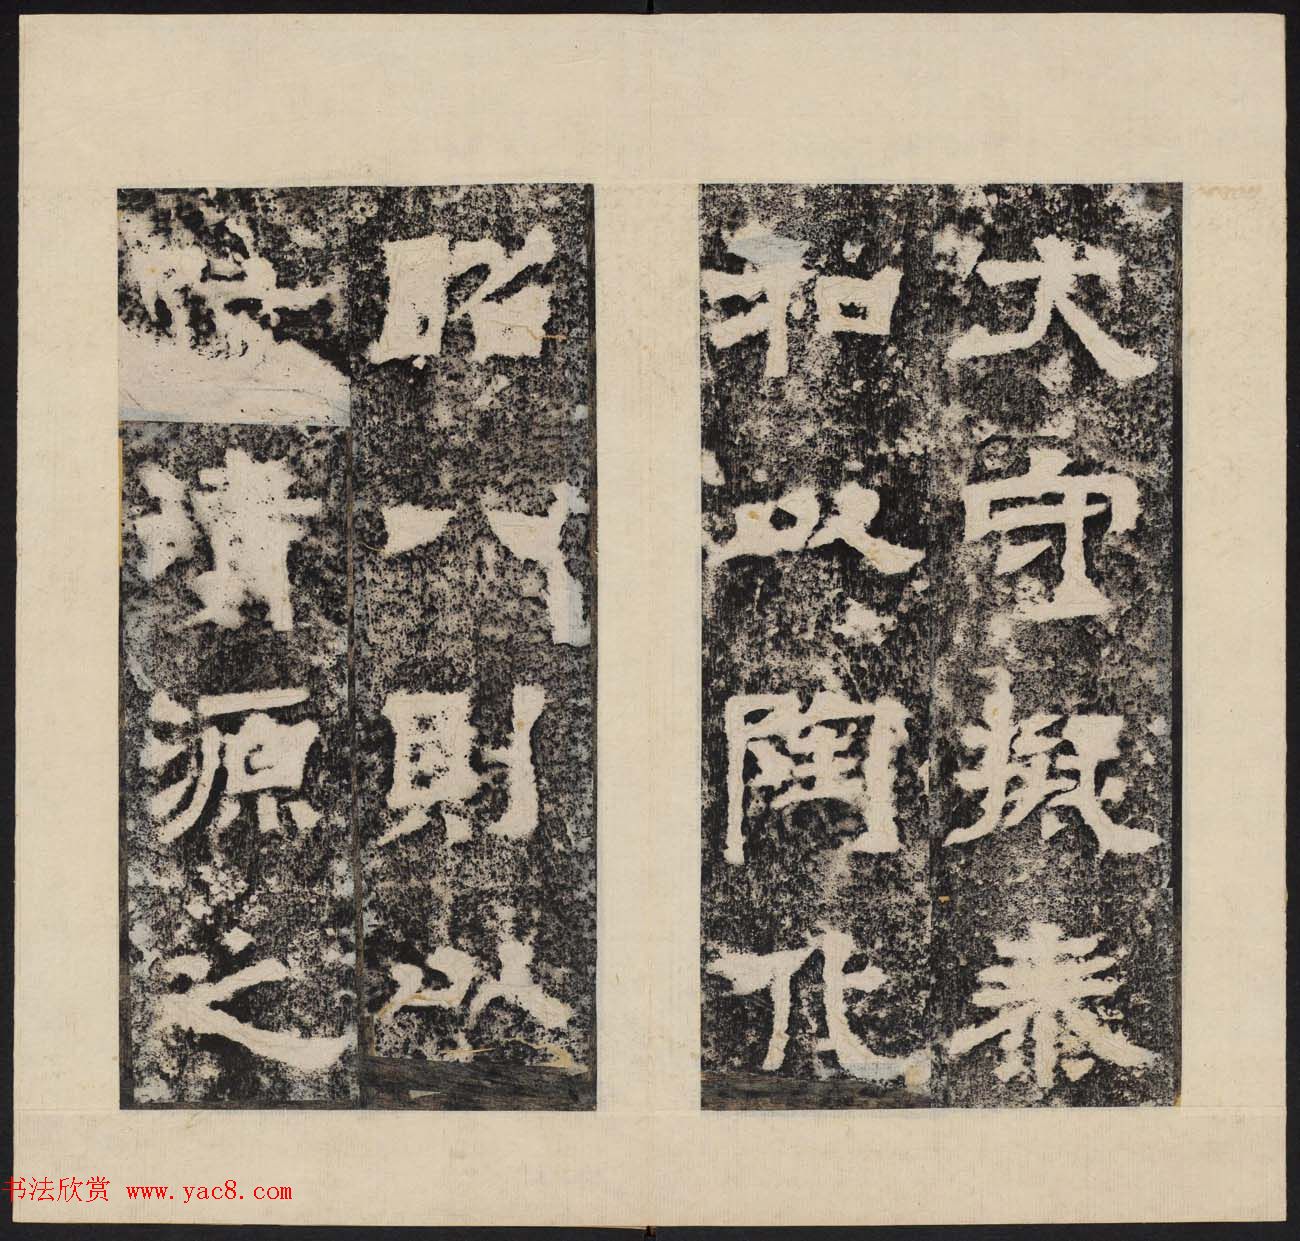 大守拟泰
和以陶化
昭八則以
清源之
书法欣赏 www.yac8.com